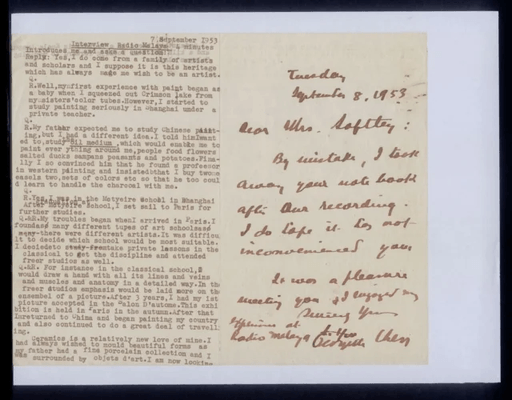 7 September 1953
Interview Radio Malaya minutes
Introduces me and asks a question
Reply: Yes, I do come from a family of artists
and scholars and I suppose it is this heritage
which has always made me wish to be an artist.
Q.
R.Well,my first experience with paint began as
a baby when I squeesed out Crimson Lake from
my sisters' color tubes.However,I started to
study painting seriously in Shanghai under a
private teacher.
Q.
R.My father expected me to study Chinese paint-
ing,but I had a different idea.I told him I want
ed to study Oil medium ,which would enable me to
paint everything around me,people food flowers
salted ducks sampans peasants and potatoes.Fina-
lly I so convinced him that he found a professor
in western painting and insisted that I buy two
easels two,sets of colors etc so that he too coul
d learn to handle the charcoal with me.
Q.
R.Yes,I was in the Motyeire school in Shanghai
After Motyeire School,I set sail to Paris for
further studies.
Q.&R. My troubles began when I arrived in Paris.I
found many different tupes of art schools
many there were different artists.It was difficu
lt to decide which school would be most suitable.
I decided to take private lessons in the
classical to get the discipline and attended
freer studios as well.
Q.&R. For instance in the classical school,I
would draw a hand with all its lines and veins
and muscles and anatomy in a detailed way.In the
freer studios emphasis would be laid more on the
ensembel of a picture.After 3 years,I had my 1st
picture accepted in the Salon D'automne.This exhi
bition is held in Paris in the autumn.After that
I returned to China and began painting my country
and also continued to do a great deal of travell
ing.
Ceramics is a relatively new love of mine.I
had always wished to mould beautiful forms as
my father had a fine porcelain collection and I
was surrounded by objets d'art.I am now lookin-
Tuesday
September 8, 1953
Dear Mrs.
By mistake, I took
away your note book
after our recording.
I do hope it has not
inconvenienced you
It was a pleasure
meeting you & I enjoyed my
experience at
Radio Malaya
Sincerely Yours
Georgette Chen